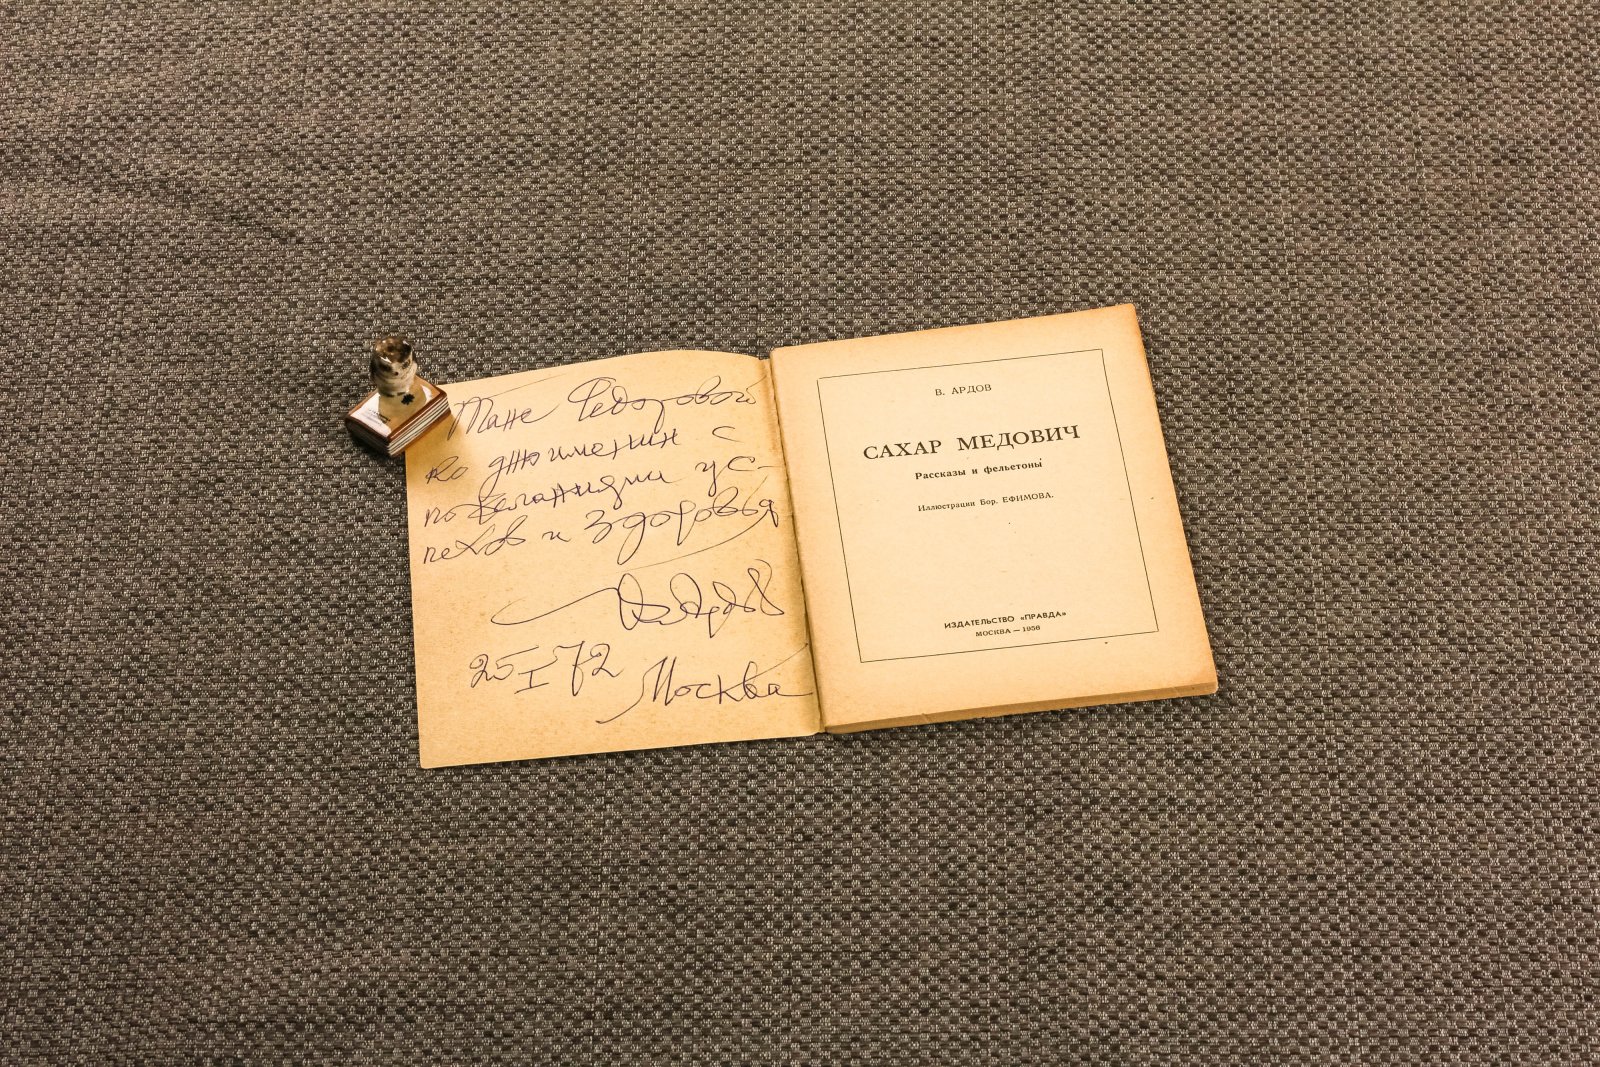 Тане Федоровой
ко дню именин с
пожеланиями ус-
пехов и здоровья
В. Ардов
25 I 72
Москва
В. АРДОВ
САХАР МЕДОВИЧ
Рассказы и фельетоны
Иллюстрации Бор. ЕФИМОВА.
ИЗДАТЕЛЬСТВО «ПРАВДА»
МОСКВА — 1956